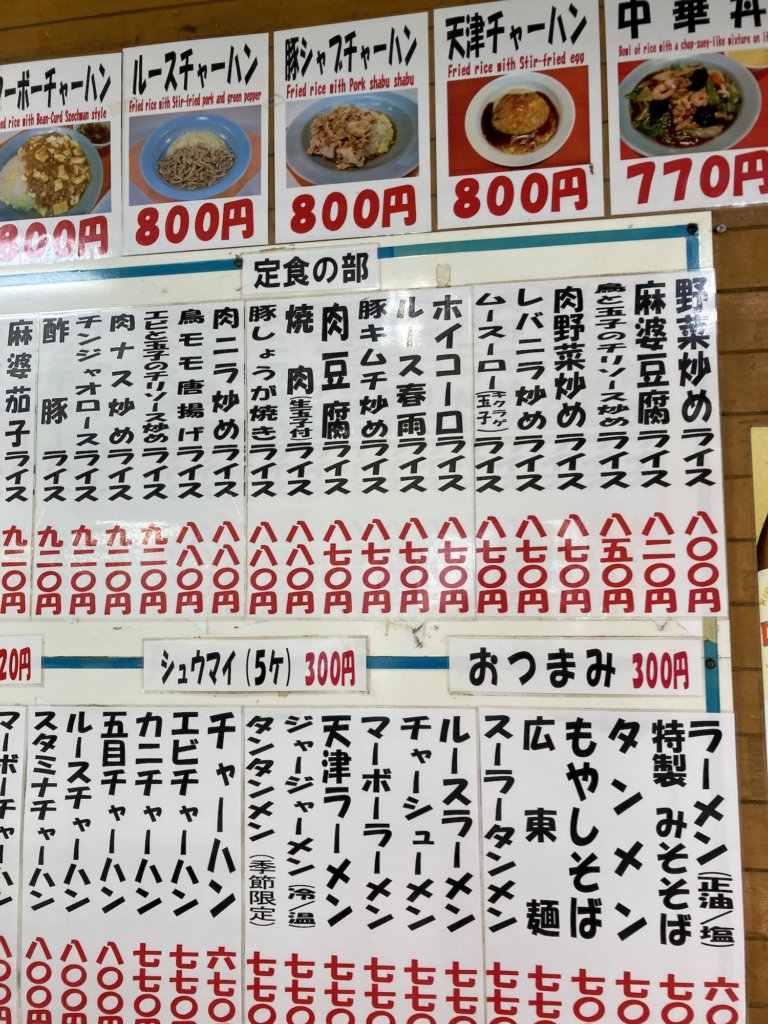 マーボーチャーハン
Fried rice with Bean-Curd Szechman style
800円
ルースチャーハン
Fried rice with Stir-fried pork and green pepper
800円
豚シャブチャーハン
Fried rice with Pork shabu shabu
800円
天津チャーハン
Fried rice with Stir-fried egg
800円
中華丼
Bowl of rice with a chop-suey-like mixture on it
770円
定食の部
野菜炒めライス 八〇〇円
麻婆豆腐ライス 八二〇円
鳥と玉子のチリソース炒めライス 八五〇円
肉野菜炒めライス 八七〇円
レバニラ炒めライス 八七〇円
ムースーロー(キクラゲ玉子)ライス 八七〇円
ホイコーロライス 八七〇円
ルース春雨ライス 八七〇円
豚キムチ炒めライス 八七〇円
肉豆腐ライス 八七〇円
焼肉(生玉子付)ライス 八八〇円
豚しょうが焼きライス 八八〇円
肉ニラ炒めライス 八八〇円
鳥モモ唐揚げライス 八八〇円
エビと玉子のチリソース炒めライス 九二〇円
肉ナス炒めライス 九二〇円
チンジャオロースライス 九二〇円
酢豚ライス 九二〇円
麻婆茄子ライス 九二〇円
20円
シュウマイ(5ケ) 300円
おつまみ 300円
ラーメン(正油/塩)
特製みそそば
タンメン
もやしそば
広東麺
スーラータンメン
ルースラーメン
チャーシューメン
マーボーラーメン
天津ラーメン
ジャージャーメン(冷/温)
タンタンメン(季節限定)
チャーハン 六七〇
エビチャーハン 七七〇
カニチャーハン 七七〇
五目チャーハン 八〇〇
ルースチャーハン 八〇〇
スタミナチャーハン 八〇〇
マーボーチャー